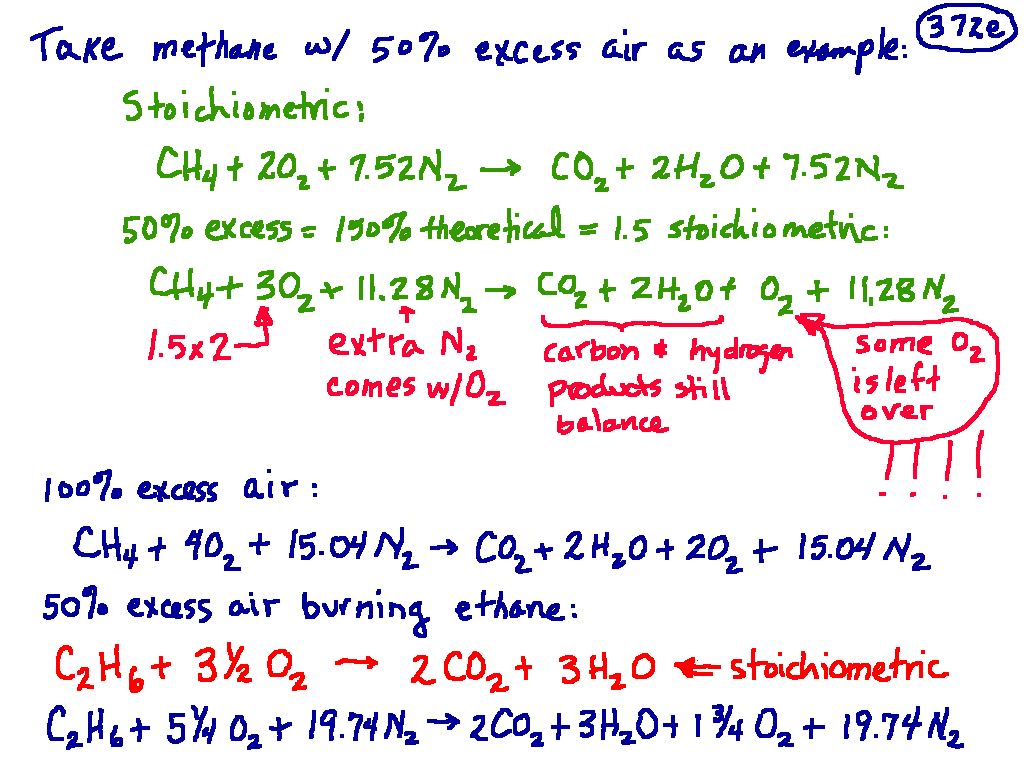 Take methane w/ 50% excess air as an example: 372e
Stoichiometric:
CH₄ + 2O₂ + 7.52N₂ → CO₂ + 2H₂O + 7.52N₂
50% excess = 150% theoretical = 1.5 stoichiometric:
CH₄ + 3O₂ + 11.28N₂ → CO₂ + 2H₂O + O₂ + 11.28N₂
1.5x2
extra N₂
comes w/O₂
carbon & hydrogen
products still
balance
some O₂
is left
over
! ! ! !
100% excess air:
CH₄ + 4O₂ + 15.04N₂ → CO₂ + 2H₂O + 2O₂ + 15.04N₂
50% excess air burning ethane:
C₂H₆ + 3½ O₂ → 2CO₂ + 3H₂O ← stoichiometric
C₂H₆ + 5¼ O₂ + 19.74N₂ → 2CO₂ + 3H₂O + 1¾ O₂ + 19.74N₂